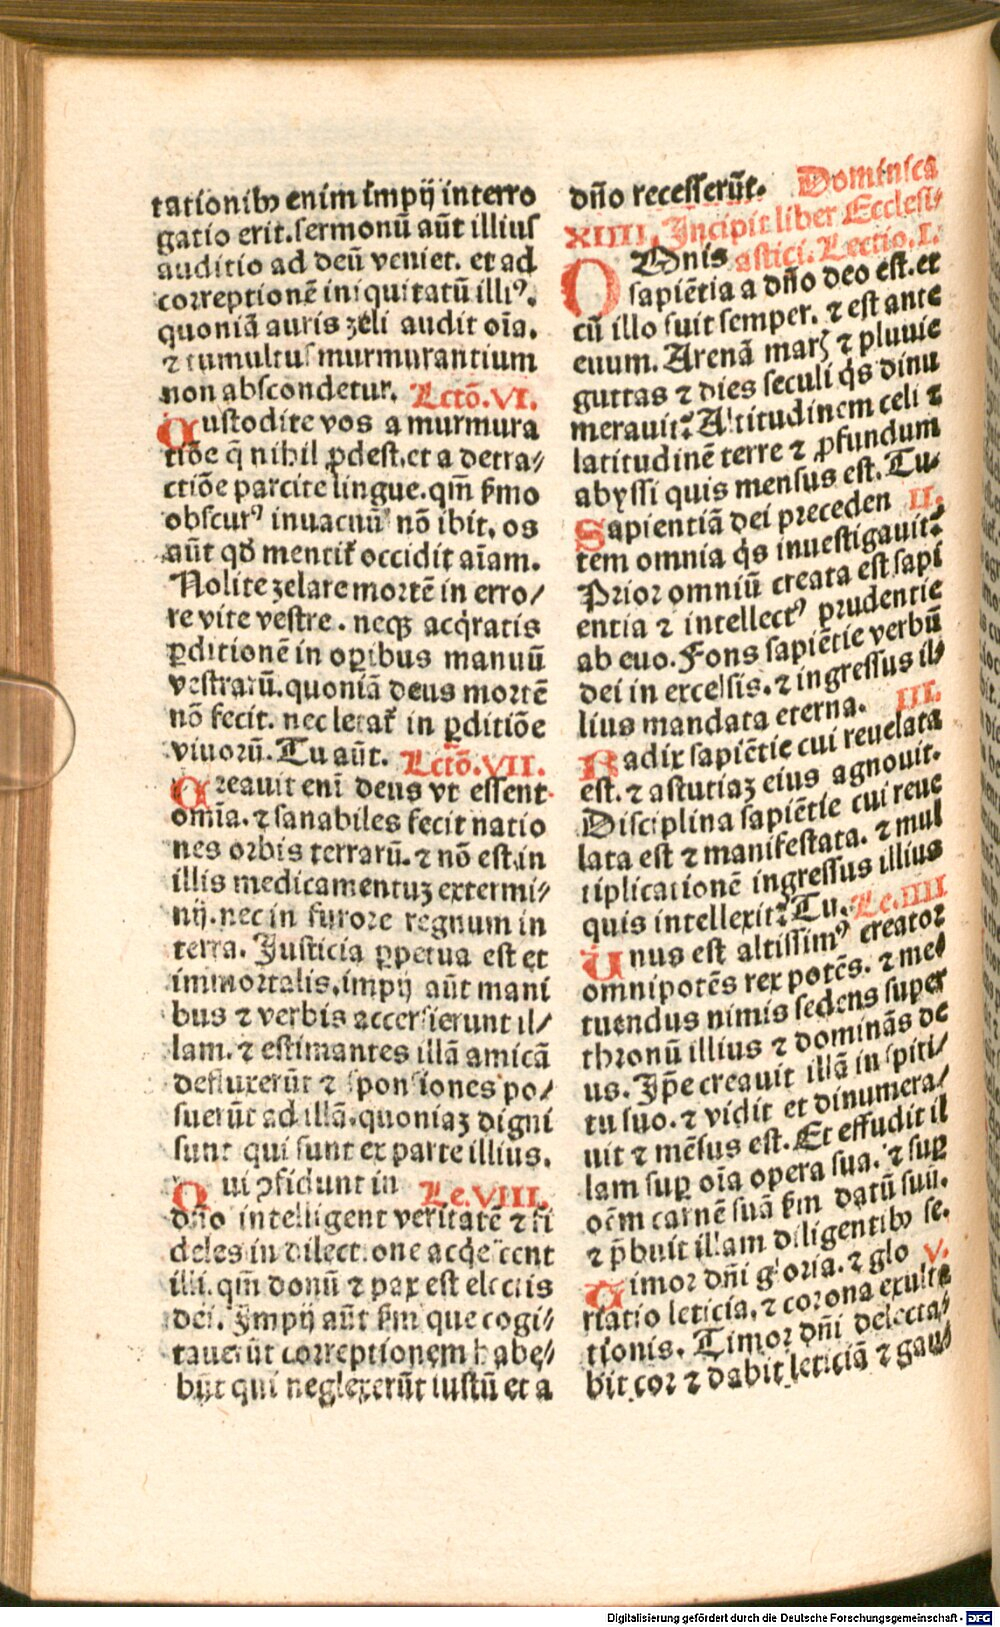 tationibꝰ enim impij interro
gatio erit. sermonū aūt illius
auditio ad deū veniet. et ad
correptionē iniquitatū illiꝰ.
quoniā auris zeli audit oīa.
⁊ tumultus murmurantium
non abscondetur. Lctō. VI.
Custodite vos a murmura
tiōe q̄ nihil ꝓdest. et a detra/
ctiōe parcite lingue. qm̄ ẜmo
obscurꝰ in vacuū nō ibit. os
aūt qď mentit᷑ occidit aīam.
Nolite zelare mortē in erro/
re vite vestre. neqꝫ acq̇ratis
ꝑditionē in oꝑibus manuū
vestrarū. quoniā deus mortē
nō fecit. nec letat᷑ in ꝑditiōe
viuorū. Tu aūt. Lctō. VII.
Creauit enī deus vt essent
omīa. ⁊ sanabiles fecit natio
nes orbis terrarū. ⁊ nō est in
illis medicamentuꝫ extermi/
nij. nec in furore regnum in
terra. Justicia ꝑpetua est et
immortalis. impij aūt mani
bus ⁊ verbis accersierunt il/
lam. ⁊ estimantes illā amicā
defluxerūt ⁊ sponsiones po/
suerūt ad illā. quoniaꝫ digni
sunt qui sunt ex parte illius.
Qui ↄfidunt in Le. VIII.
dn̄o intelligent veritatē ⁊ fi
deles in dilectione acq̇escent
illi. qm̄ donū ⁊ pax est electis
dei. Jmpij aūt ẜm que cogi/
tauerūt correptionem habe/
būt qui neglexerūt iustū et a
dn̄o recesserūt. Dominica
XIIII. Jncipit liber Ecclesi/
astici. Lectio. I.
OMnis
sapiētia a dn̄o deo est. et
cū illo fuit semper. ⁊ est ante
euum. Arenā marꝭ ⁊ pluuie
guttas ⁊ dies seculi q̇s dinu
merauit? Altitudinem celi ⁊
latitudinē terre ⁊ ꝓfundum
abyssi quis mensus est. Tu.
Sapientiā dei preceden II.
tem omnia q̇s inuestigauit?
Prior omniū creata est sapi
entia ⁊ intellectꝰ prudentie
ab euo. Fons sapiētie verbū
dei in excelsis. ⁊ ingressus il/
lius mandata eterna. III.
Radix sapiētie cui reuelata
est. ⁊ astutiaꝫ eius agnouit.
Disciplina sapiētie cui reue
lata est ⁊ manifestata. ⁊ mul
tiplicationē ingressus illius
quis intellexit? Tu. Le. IIII
Unus est altissimꝰ creator
omnipotēs rex potēs. ⁊ me/
tuendus nimis sedens super
thronū illius ⁊ dominās de
us. Jp̄e creauit illā in spiri/
tu suo. ⁊ vidit et dinumera/
uit ⁊ mēsus est. Et effudit il
lam suꝑ oīa opera sua. ⁊ suꝑ
oēm carnē suā ẜm datū suū.
⁊ p̄buit illam diligentibꝰ se.
Timor dn̄i gloria. ⁊ glo V.
riatio leticia. ⁊ corona exulta
tionis. Timor dn̄i delecta/
bit cor ⁊ dabit leticiā ⁊ gau/
Digitalisierung gefördert durch die Deutsche Forschungsgemeinschaft - DFG